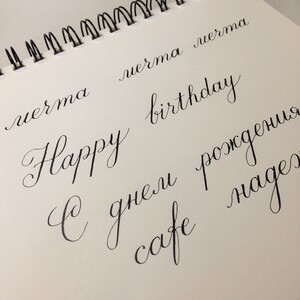 мечта мечта мечта
Happy birthday
С днем рождения
cafe